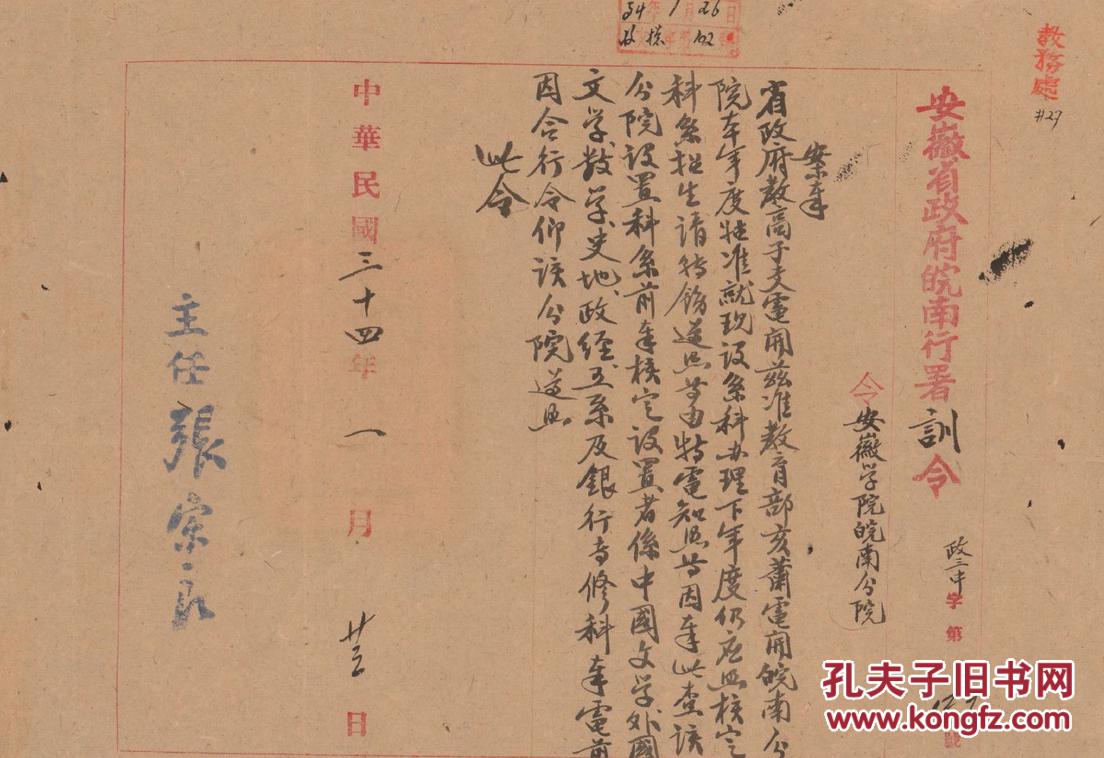 教務處
#27
34年1月26日
收 102
安徽省政府皖南行署訓令
政三中字第 號
令安徽学院皖南分院
案奉
省政府教高子支電開兹准教育部亥蕭電開皖南分
院本年度姑准就現设系科办理下年度仍应照核定
科系招生请转饬遵照等由特電知照等因奉此查该
分院设置科系前奉核定设置者係中國文学外國
文学、数学、史地、政经、五系及銀行专修科奉電前
因合行令仰该分院遵照
此令
主任張宗良
中華民國三十四年一月廿三日
孔夫子旧书网
www.kongfz.com